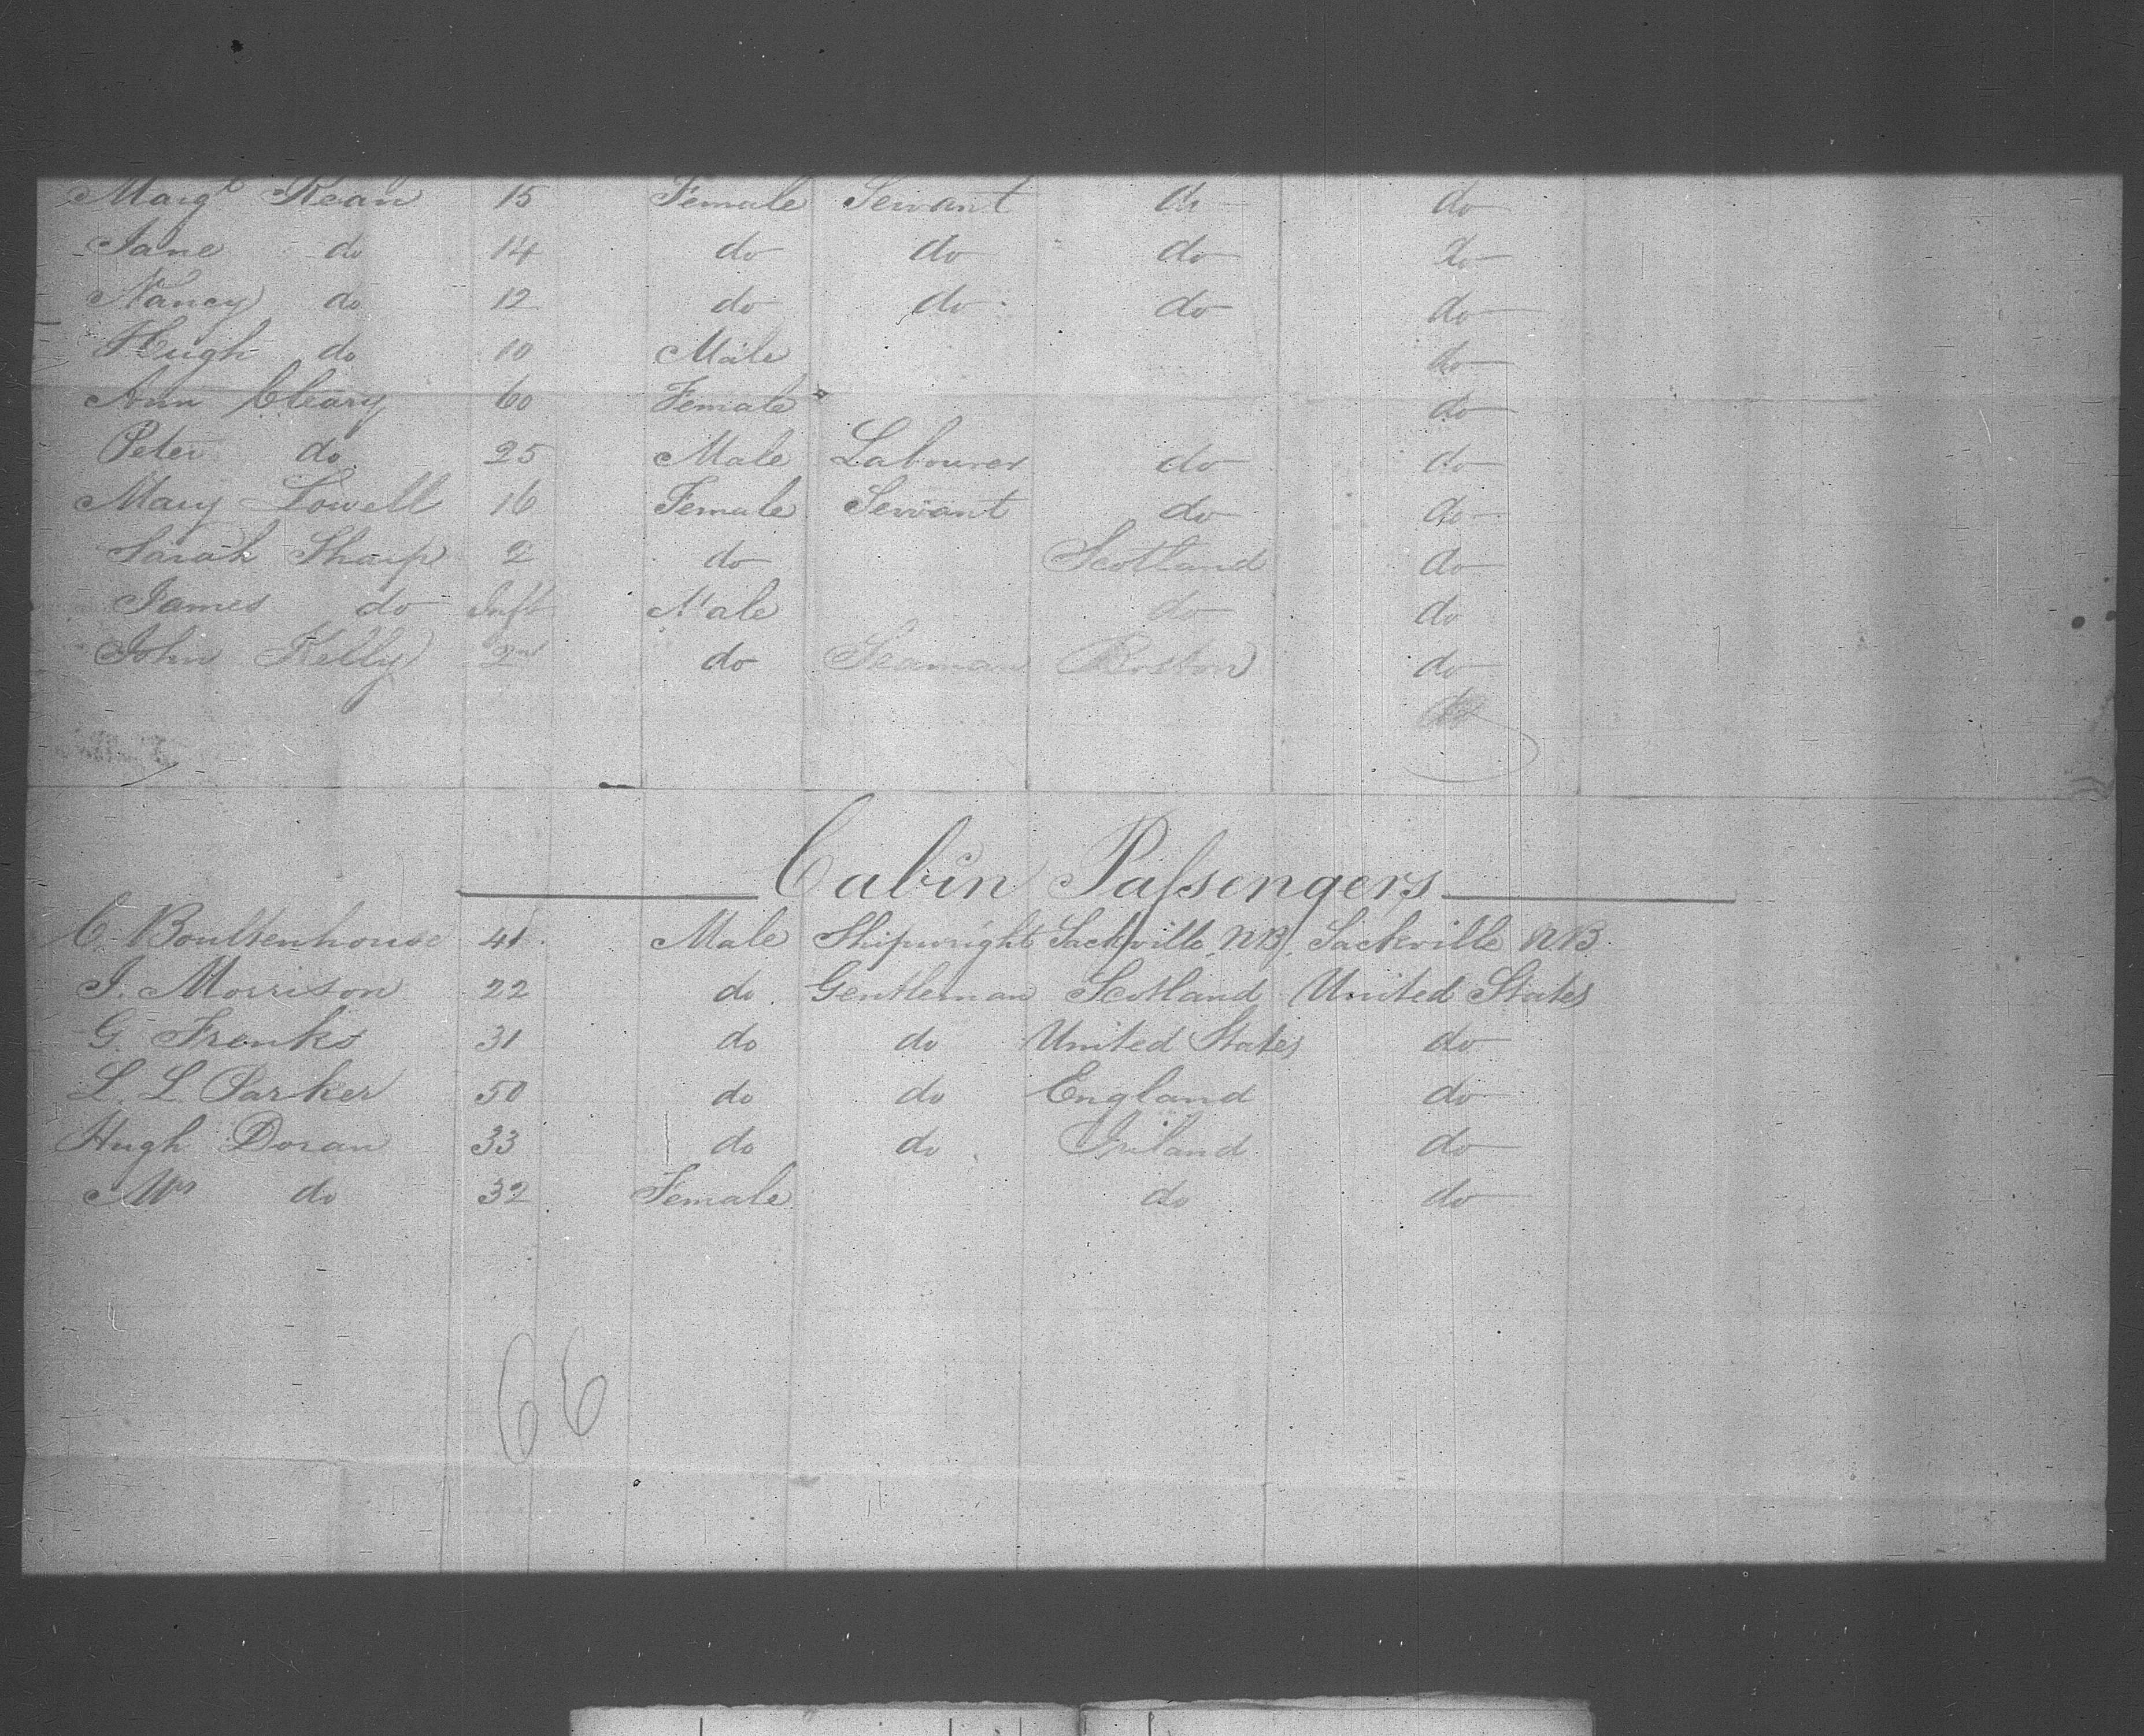 Margt Kean 15 Female Servant do do
Jane do 14 do do do do
Nancy do 12 do do do do
Hugh do 10 Male do
Ann Cleary 60 Female do
Peter do 25 Male Labourer do do
Mary Lowell 16 Female Servant do do
Sarah Sharp 2 do Scotland do
James do Inft Male do do
John Kelly do Seaman Boston do
do
Cabin Passengers
C. Boultenhouse 41 Male Shipwright Sackville NB. Sackville NB.
J. Morrison 22 do. Gentleman Scotland United States
G. Frenks 31 do do United States do
L. L. Parker 50 do do England do
Hugh Doran 33 do do Ireland do
Mrs do 32 Female do do